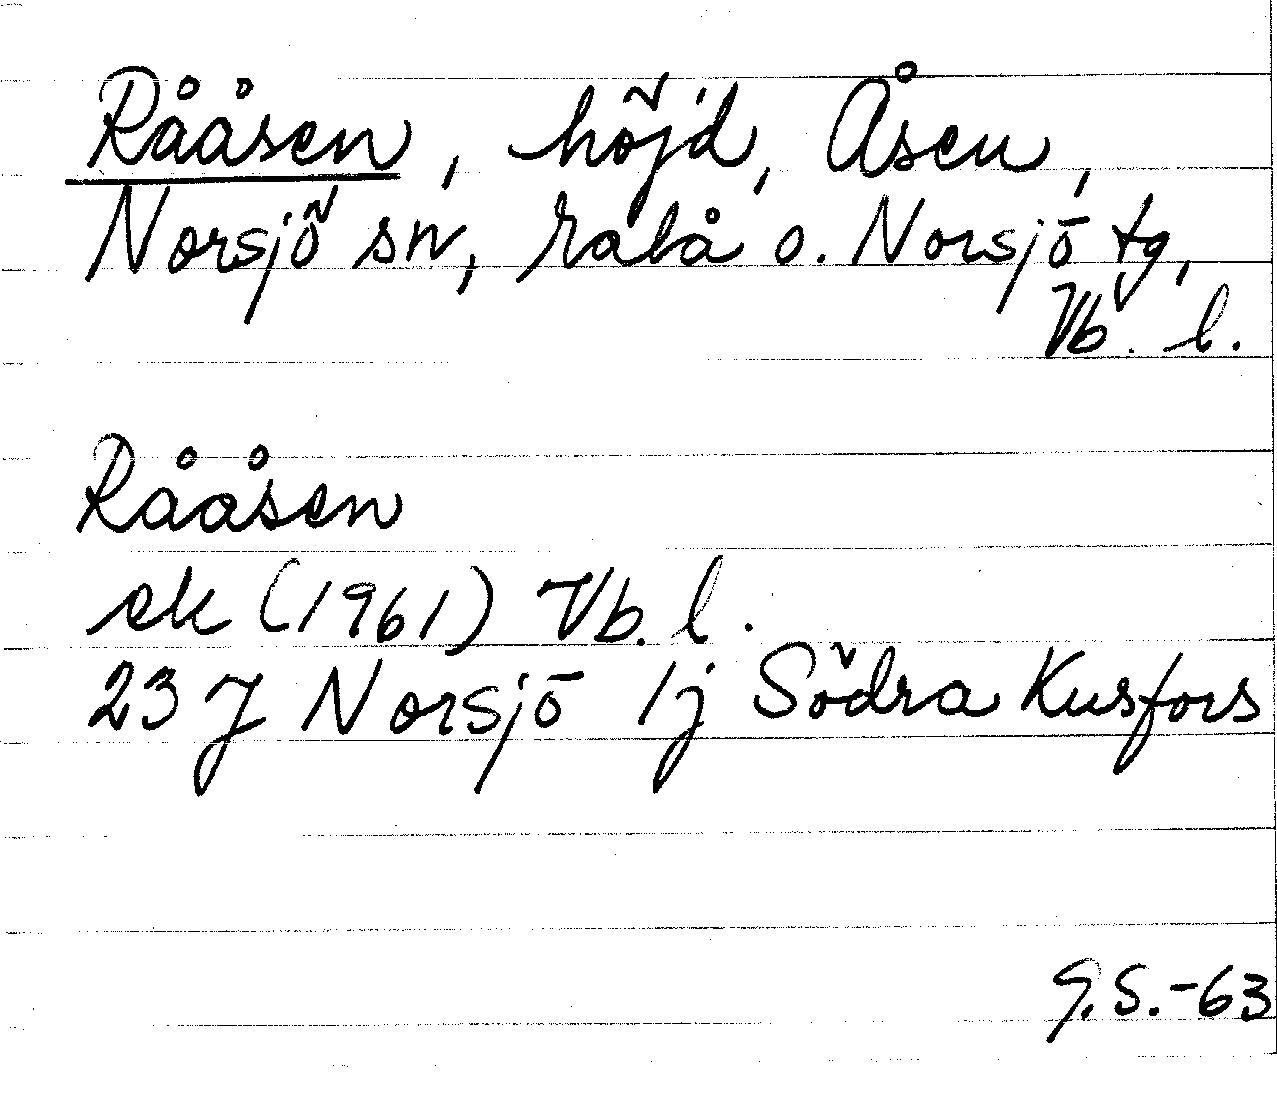 Rååsen, höjd, Åsen,
Norsjö sn, Malå o. Norsjö tg,
Vb. l.
Rååsen
ek (1961) Vb. l.
23 J Norsjö 1j Södra Kusfors
G.S.-63